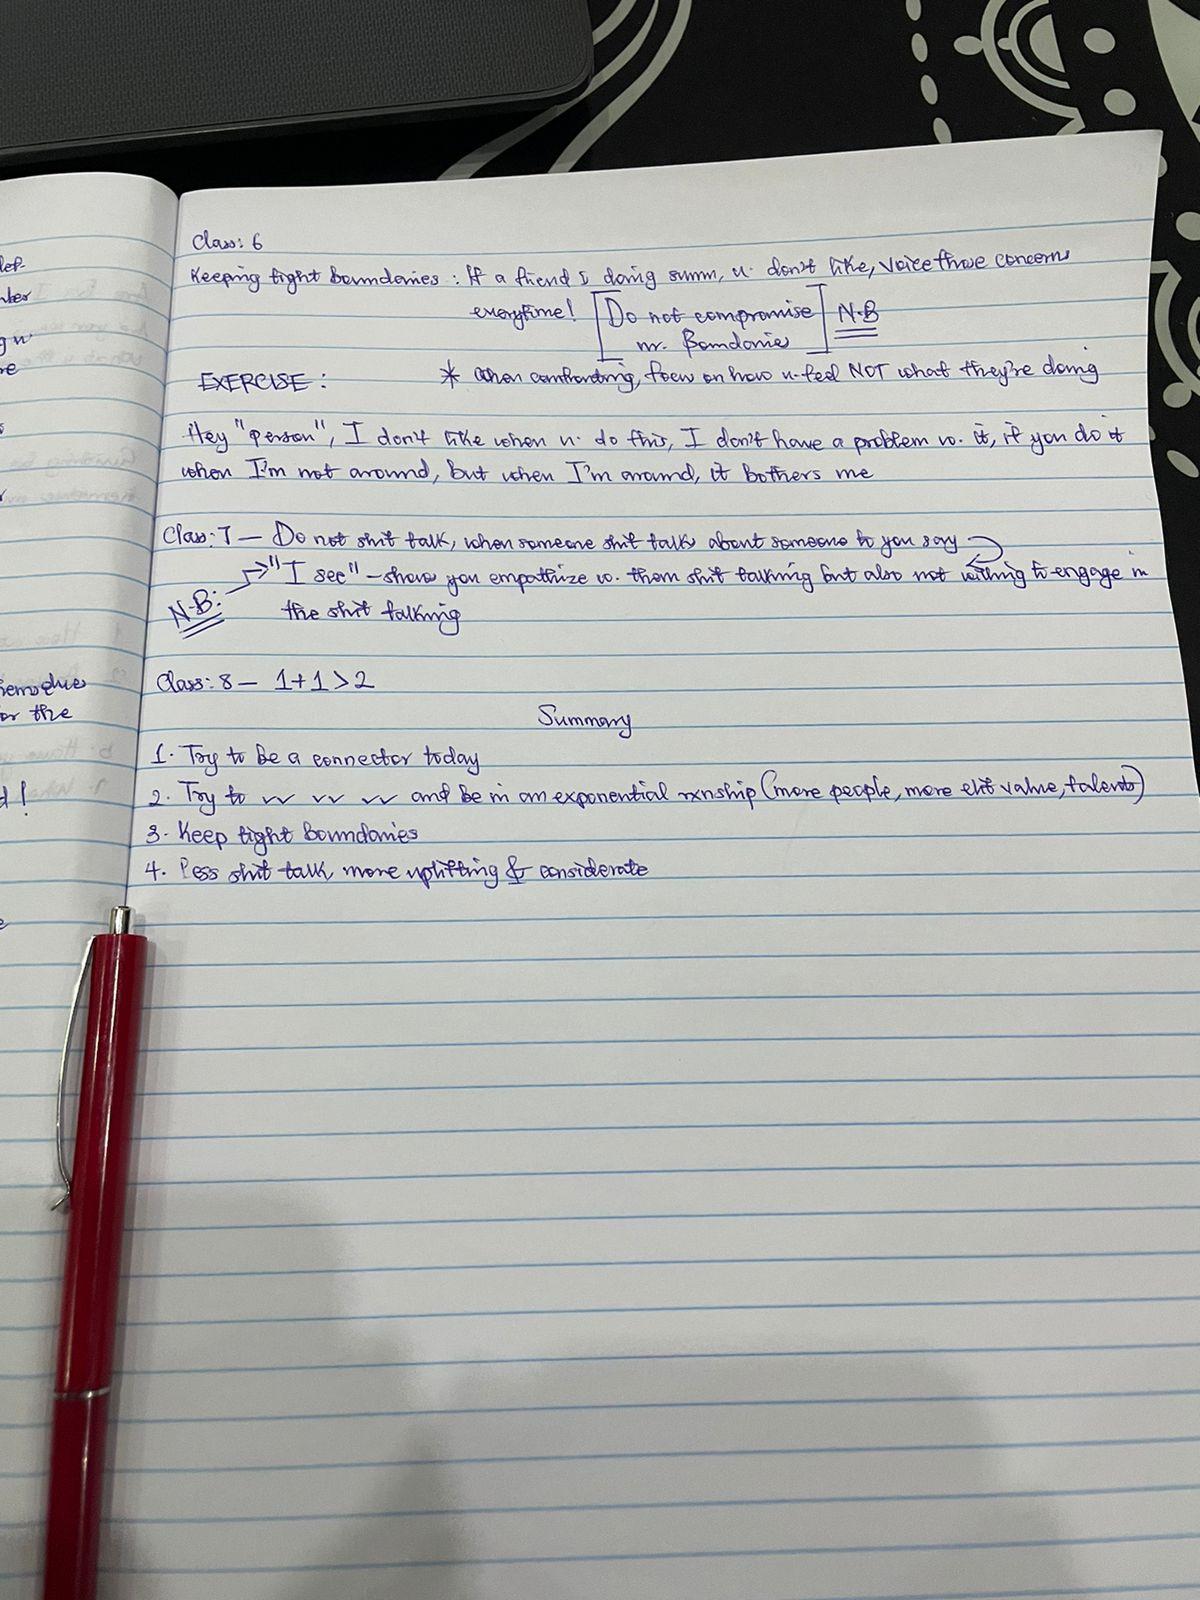 lef-
nber
re
or the
d!
Class: 6
Keeping tight boundaries: If a friend is doing summ, u. don't like, voice those concerns
everytime! [Do not compromise] N.B
ur. Boundaries
EXERCISE: * when confronting, focus on how u. feel NOT what they're doing
Hey "person", I don't like when u. do this, I don't have a problem w. it, if you do it
when I'm not around, but when I'm around, it bothers me
Class: 7 - Do not shit talk, when someone shit talks about someone to you say
"I see" - shows you empathize w. them shit talking but also not willing to engage in
N.B: the shit talking
Class: 8 - 1+1>2
Summary
1. Try to be a connector today
2. Try to vv vv vv and be in an exponential rxnship (more people, more value, talents)
3. Keep tight boundaries
4. Less shit talk, more uplifting & considerate